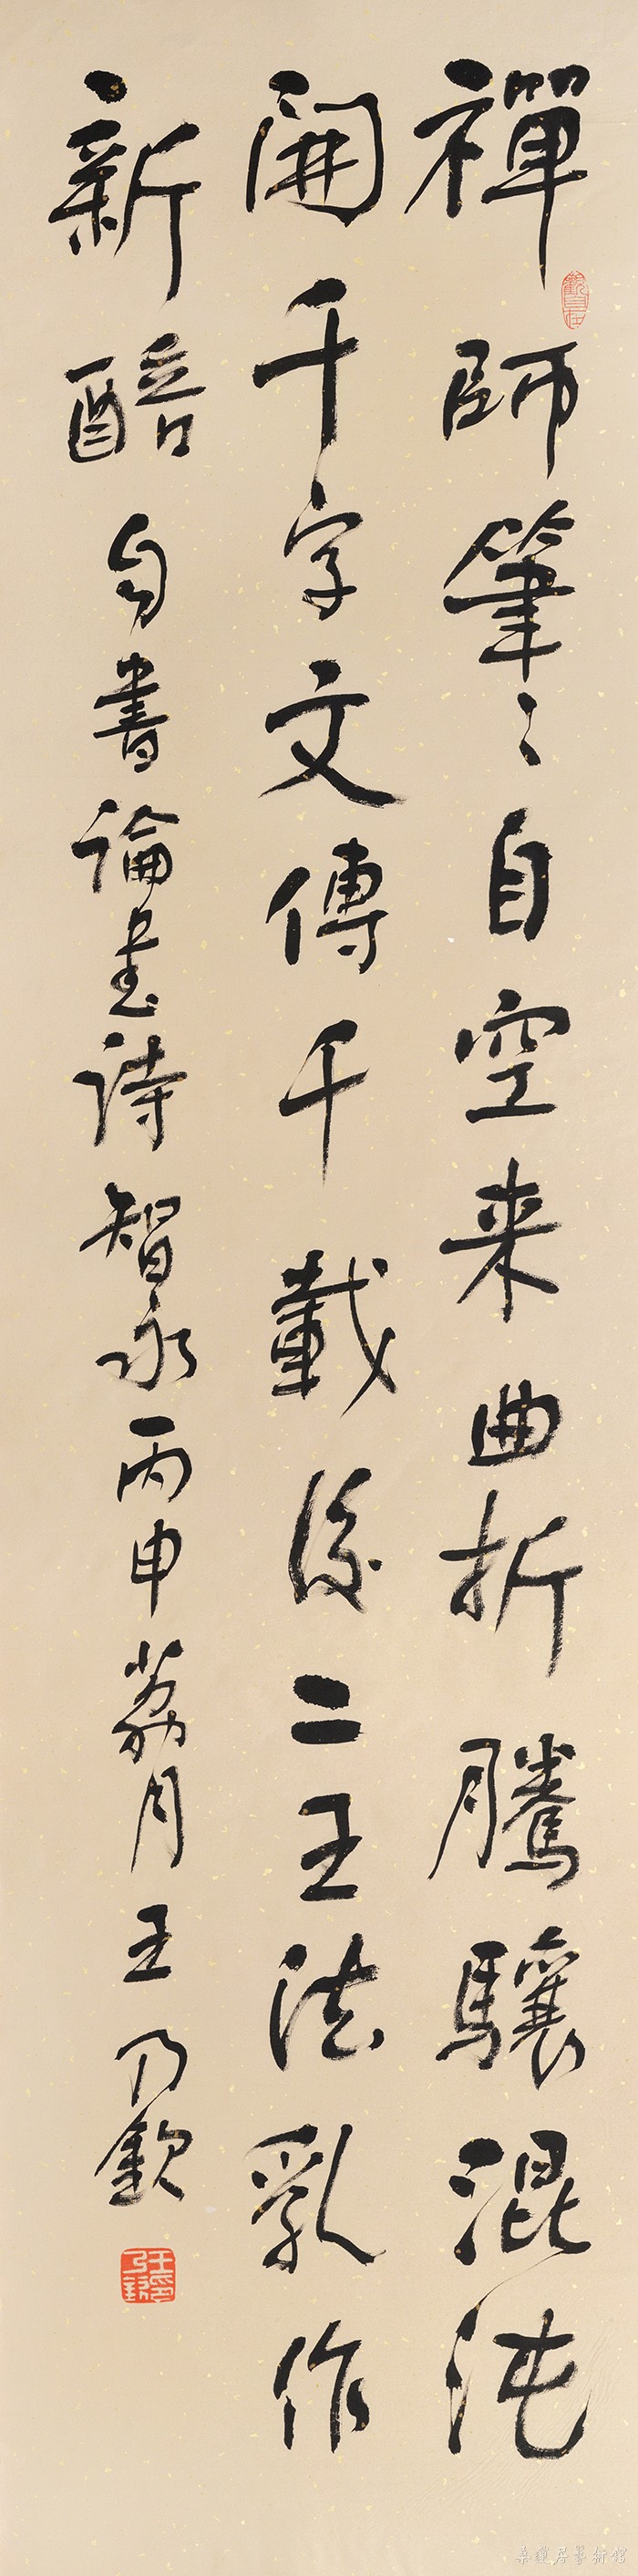 禪師筆〻自空来曲折騰驤混沌
開千字文傳千載後二王法乳作
新醅 自書論書詩智永丙申荔月王乃欽
觀自在